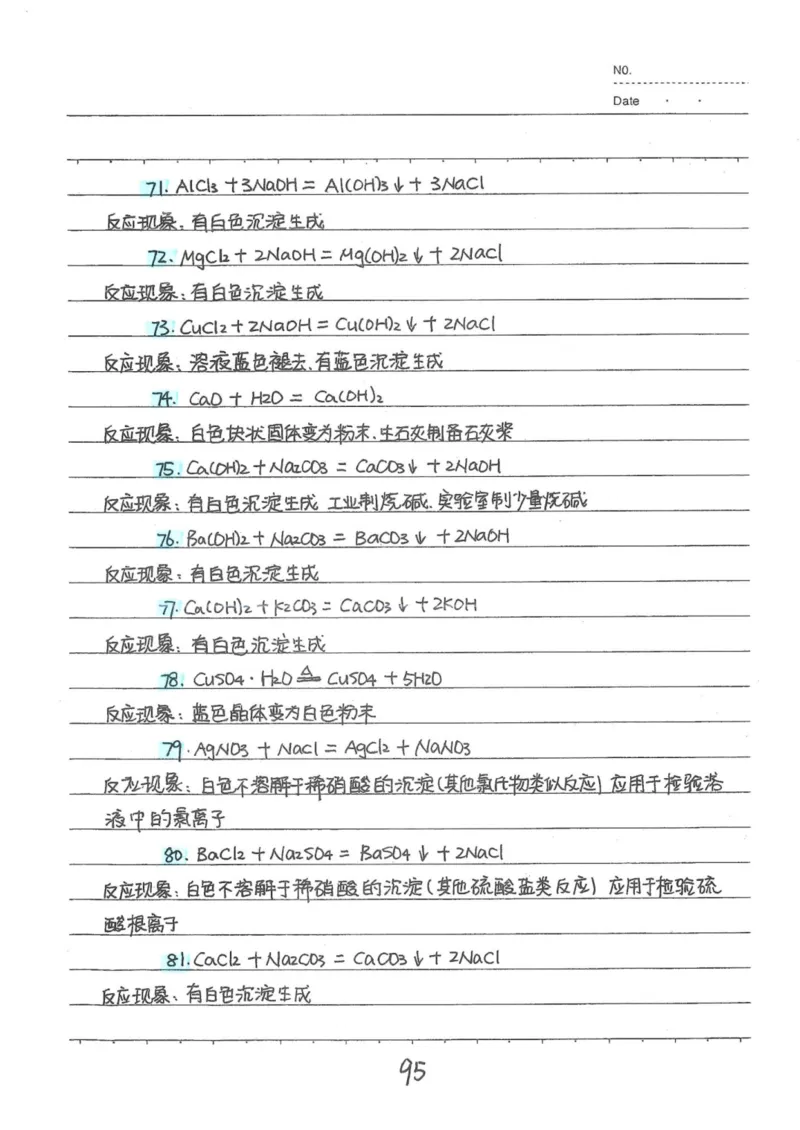 NO.
Date . .
71. AlCl3 +3NaOH = Al(OH)3↓+ 3NaCl
反应现象:有白色沉淀生成
72. MgCl2 + 2NaOH = Mg(OH)2↓ + 2NaCl
反应现象:有白色沉淀生成
73. CuCl2+2NaOH = Cu(OH)2↓ + 2NaCl
反应现象:溶液蓝色褪去、有蓝色沉淀生成
74. CaO + H2O = Ca(OH)2
反应现象:白色块状固体变为粉末、生石灰制备石灰浆
75. Ca(OH)2+Na2CO3 = CaCO3↓ + 2NaOH
反应现象:有白色沉淀生成 工业制烧碱、实验室制少量烧碱
76. Ba(OH)2+Na2CO3 = BaCO3↓ + 2NaOH
反应现象:有白色沉淀生成
77. Ca(OH)2+K2CO3 = CaCO3↓ +2KOH
反应现象:有白色沉淀生成
78. CuSO4·H2O ≜ CuSO4 + 5H2O
反应现象:蓝色晶体变为白色粉末
79. AgNO3 + NaCl = AgCl2 + NaNO3
反应现象:白色不溶解于稀硝酸的沉淀(其他氯化物类似反应)应用于检验溶
液中的氯离子
80. BaCl2 + Na2SO4 = BaSO4↓ + 2NaCl
反应现象:白色不溶解于稀硝酸的沉淀(其他硫酸盐类反应)应用于检验硫
酸根离子
81. CaCl2 + Na2CO3 = CaCO3↓ + 2NaCl
反应现象、有白色沉淀生成
95